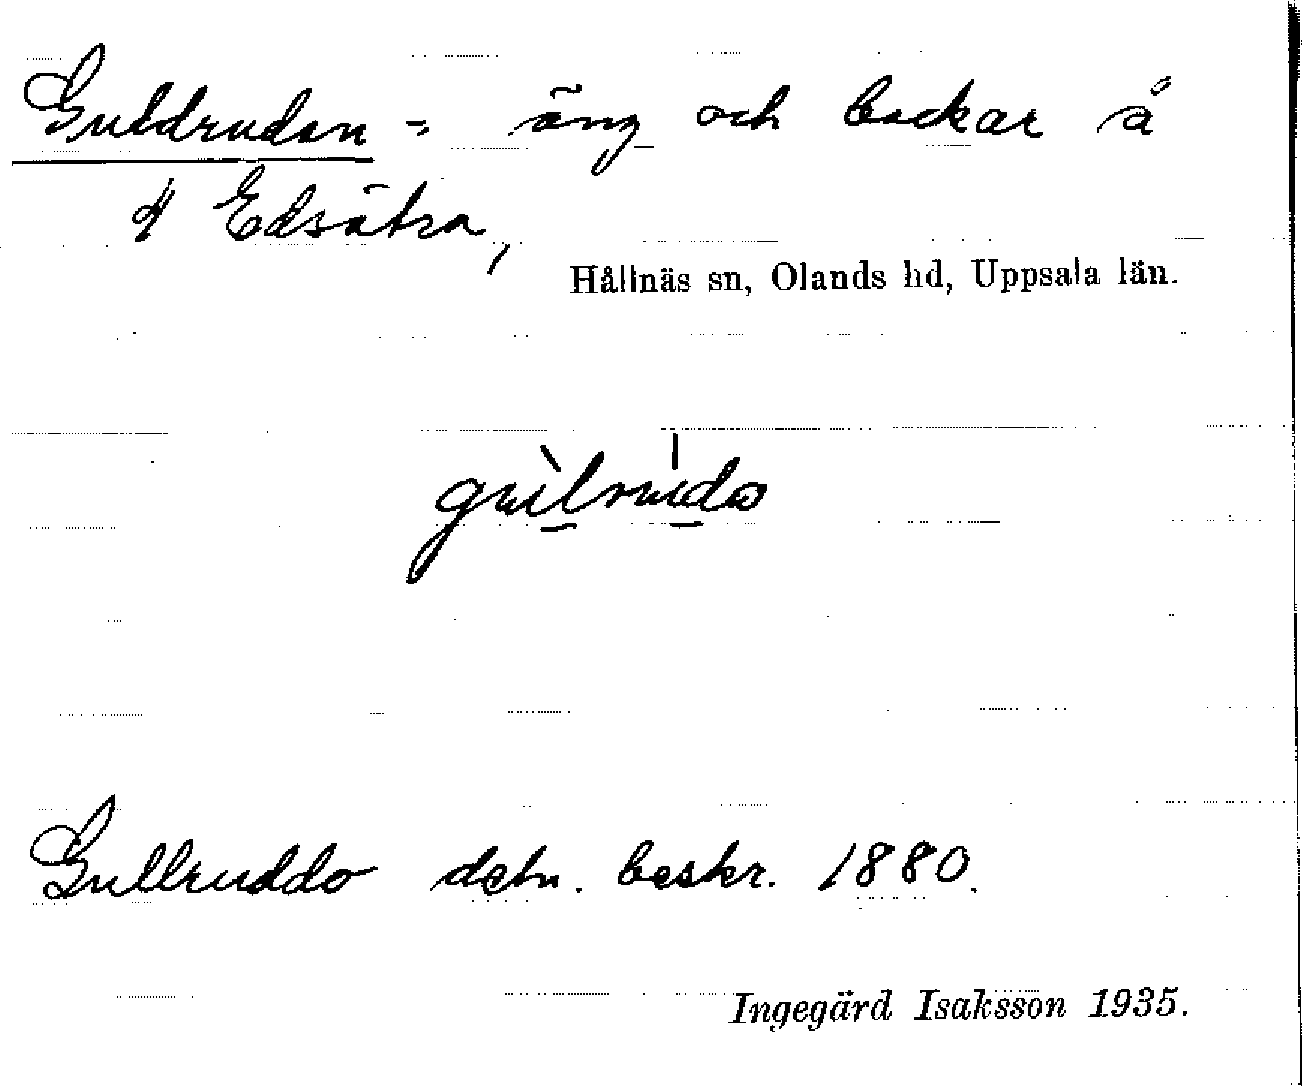 Guldrudan = äng och backar å
Edsätra,
Hållnäs sn, Olands hd, Uppsala län.
gùlrùda
Gullruddo dsbr. beskr. 1880.
Ingegärd Isaksson 1935.